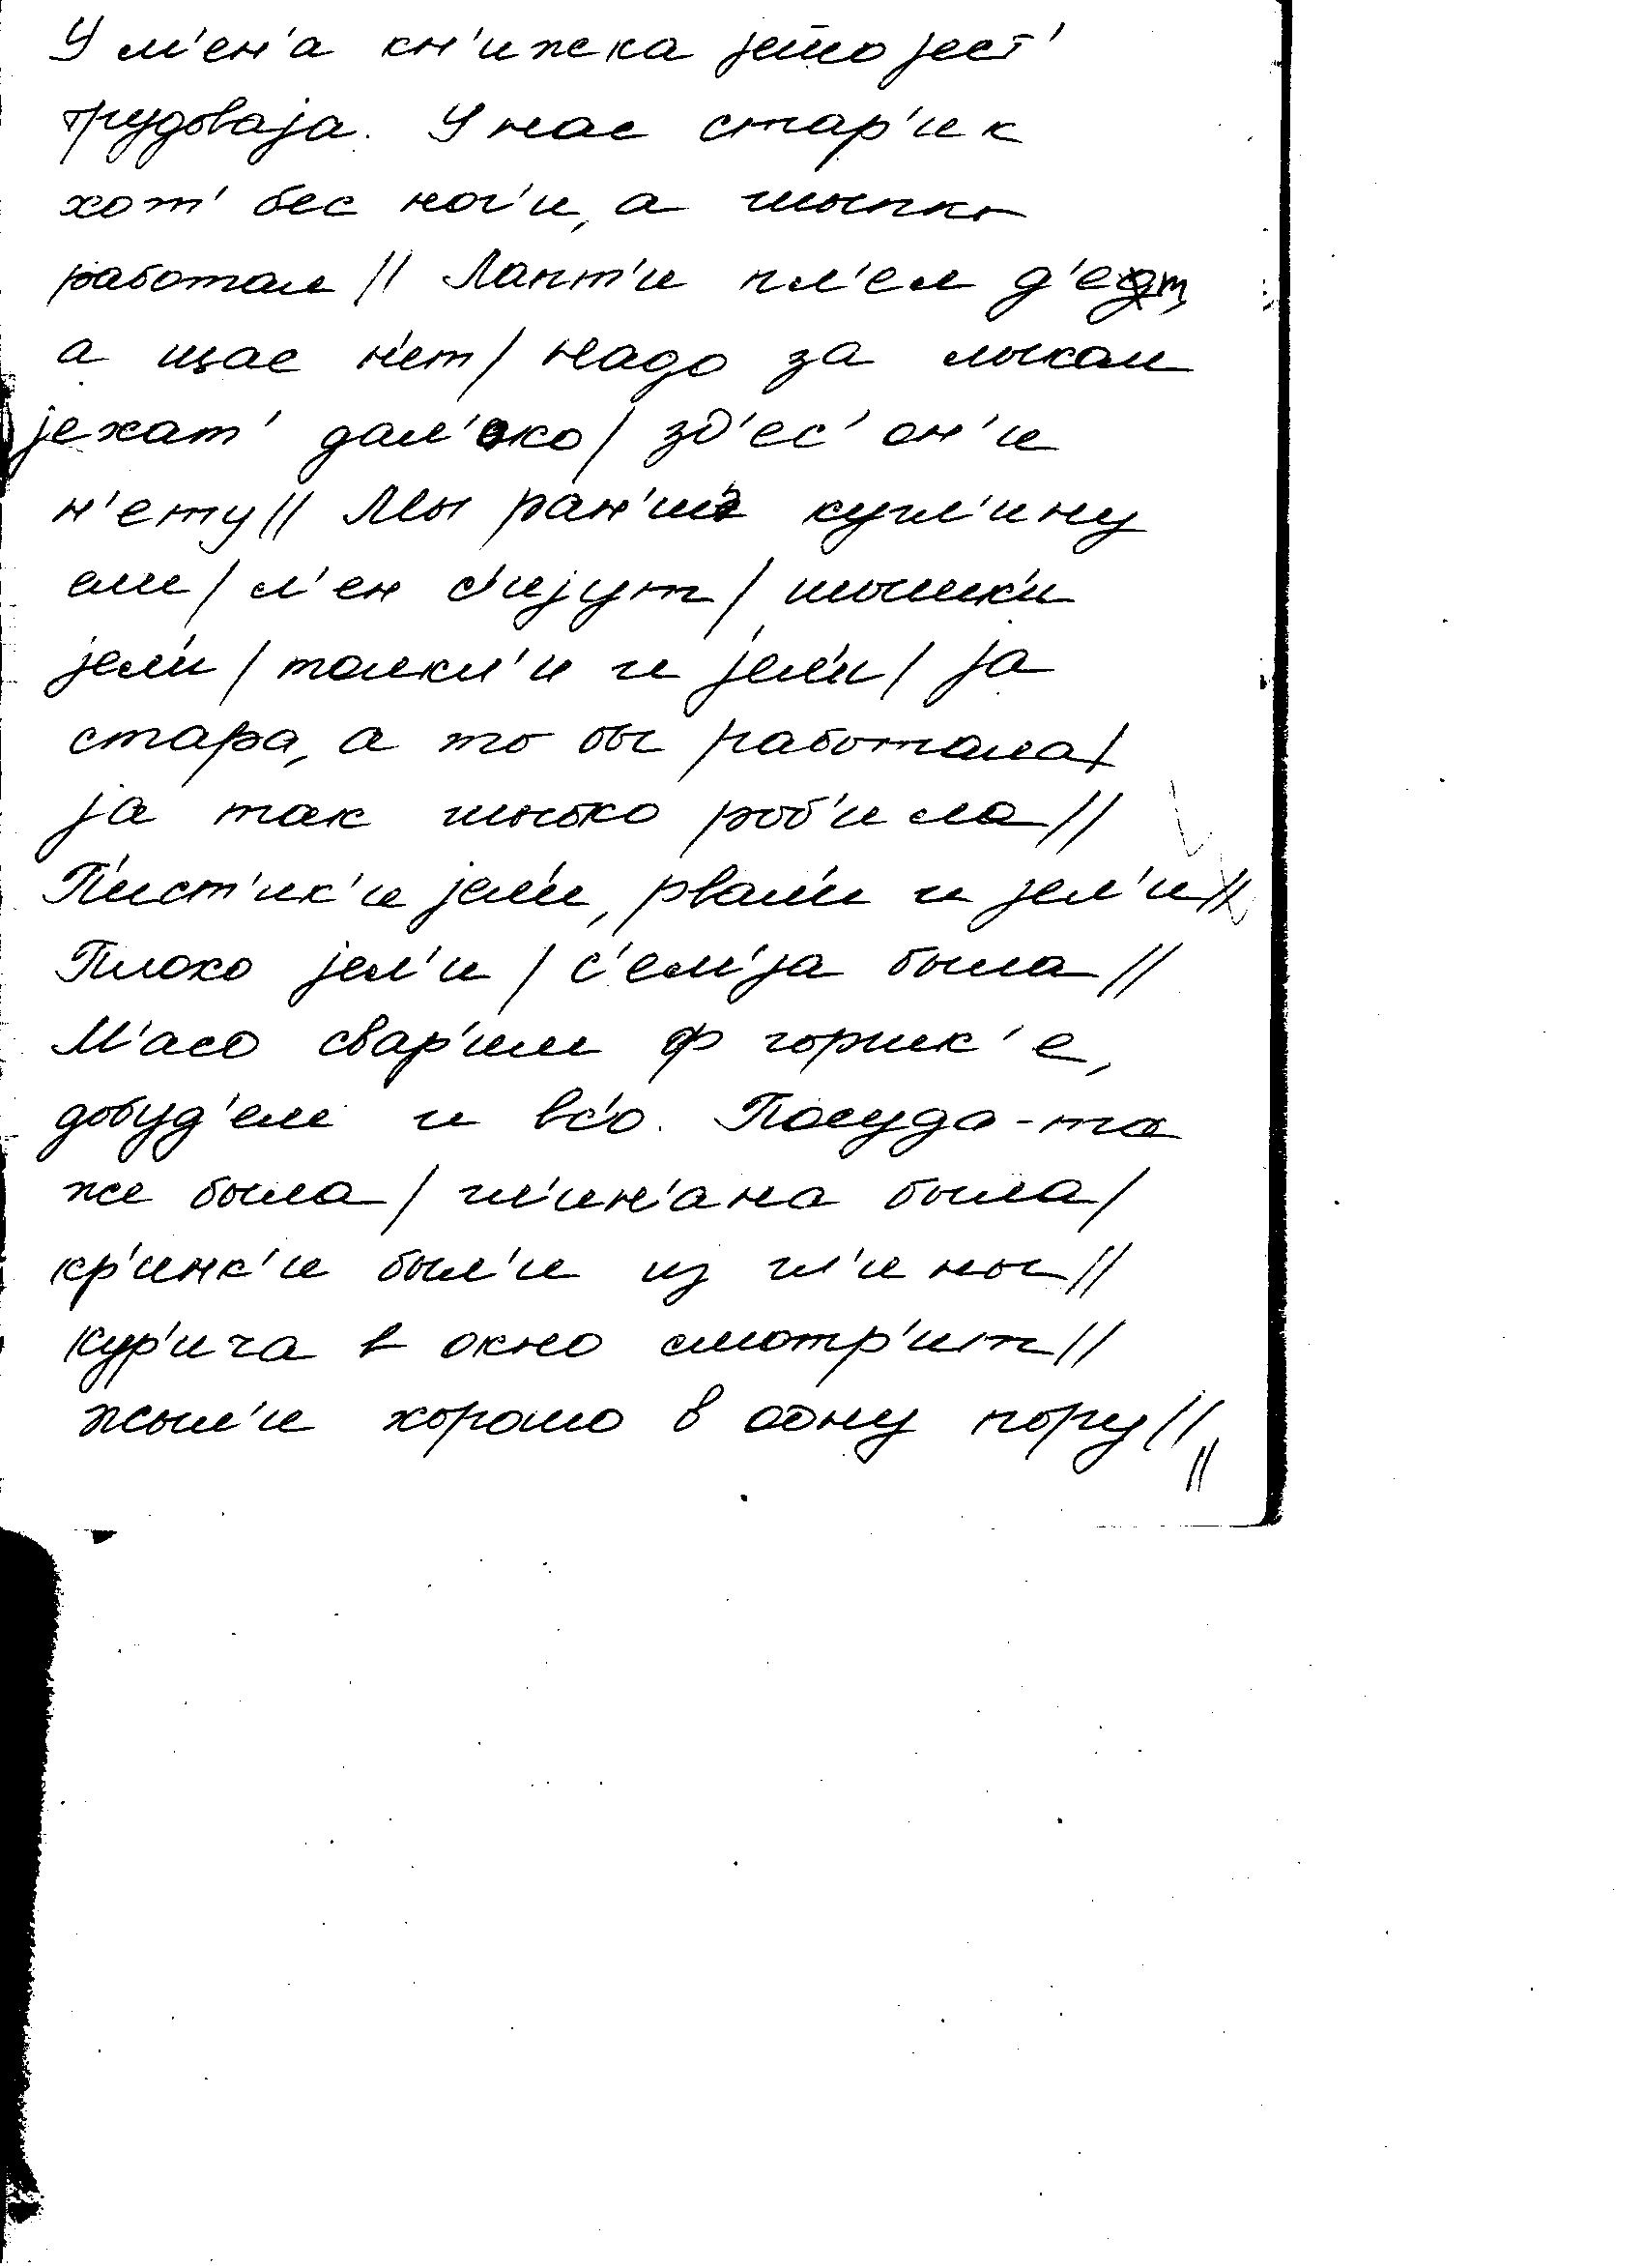 У м'ен'а кн'ижка јето јест'
трудоваја. У нас стар'ик
хот' бес ног'и, а шыпко
работал // Лапт'и пл'ел д'ет,
а щас н'ет / надо за лыком
јехат' дал'око / зд'ес' он'и
н'ету // Мы ран'шэ кугл'ину
ели / л'ен с'ијут / шышк'и
јел'и / толкл'и и јел'и / ја
стара, а то бы работала /
ја так шыпко роб'ила //
П'ист'ик'и јел'и, рвал'и и јел'и //
Плохо јел'и / с'ем'ја была //
М'асо свар'им ф горшк'е,
добуд'ем и вс'о. Посуда-то
же была / гл'ин'ана была /
кр'инк'и был'и из гл'ины //
Кур'ича в окно смотр'ит //
Жыл'и хорошо в одну пору //
//